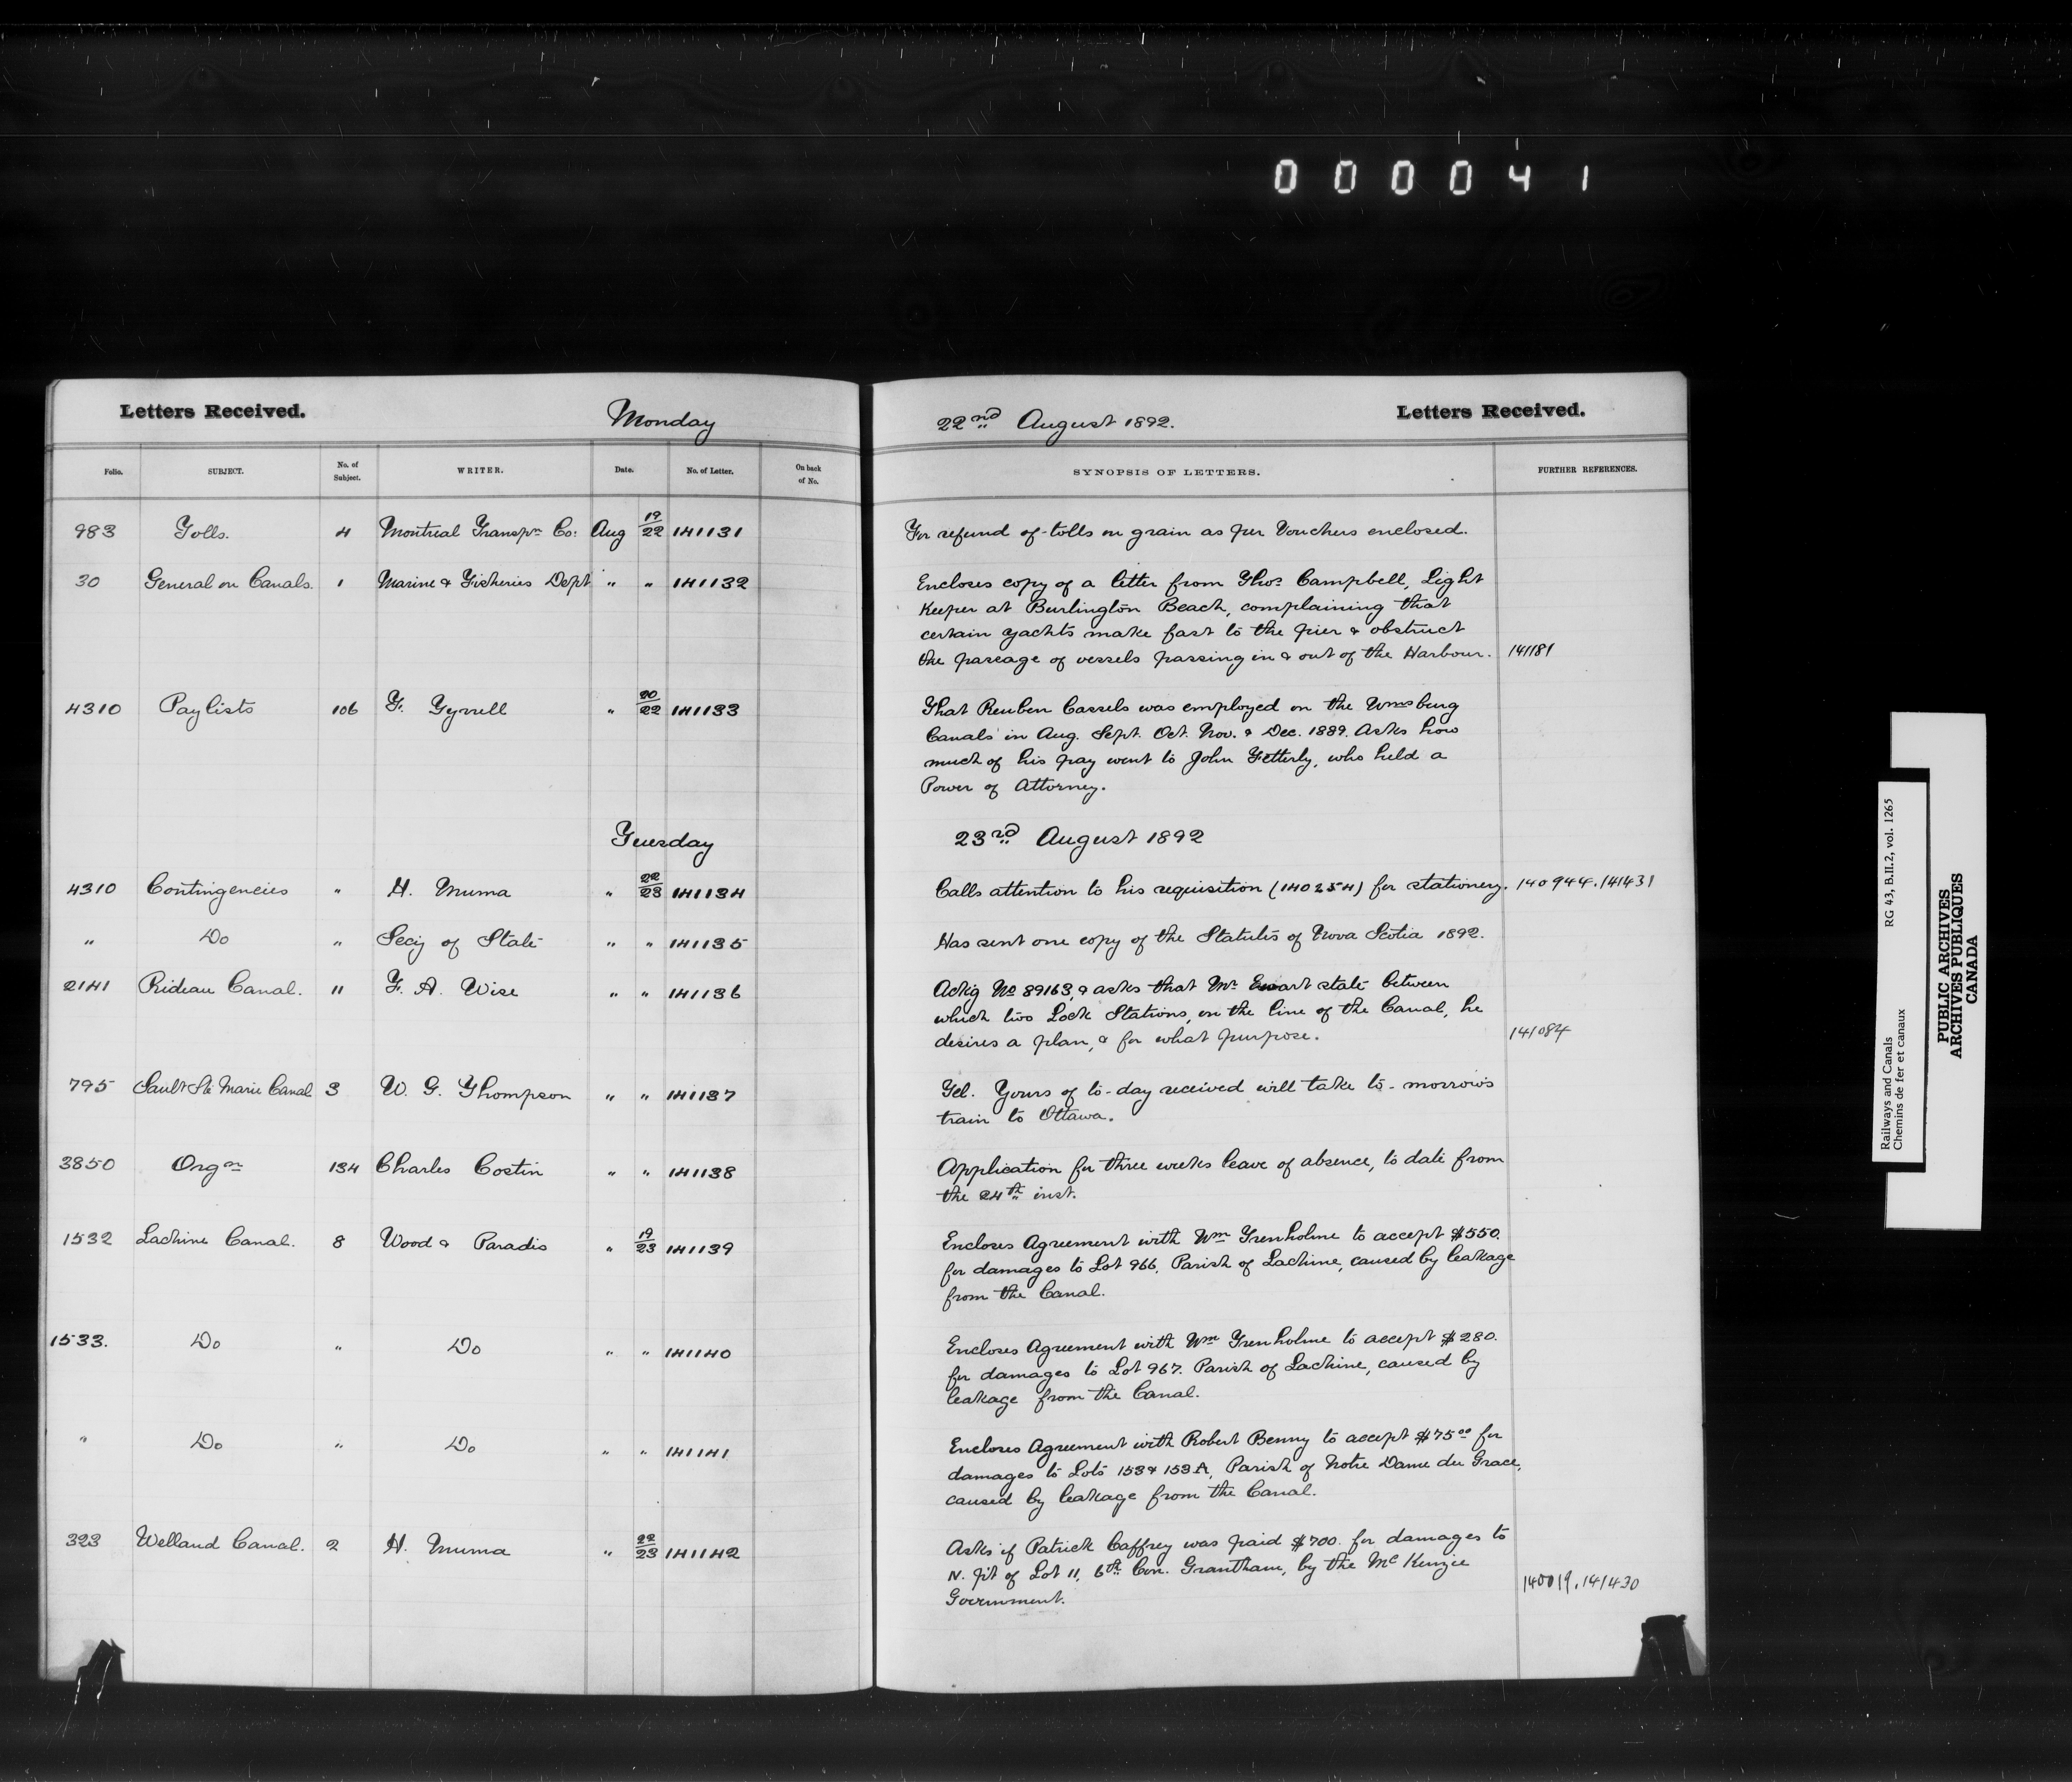 000041
Letters Received. Monday 22nd August 1892. Letters Received.
Folio. SUBJECT. No. of Subject. WRITER. Date. No. of Letter. On back of No. SYNOPSIS OF LETTERS. FURTHER REFERENCES.
983 Tolls. 4 Montreal Transpn Co: Aug 19/22 141131 For refund of tolls on grain as per Vouchers enclosed.
30 General on Canals. 1 Marine & Fisheries Dept " " 141132 Encloses copy of a letter from Thos Campbell, Light
Keeper at Burlington Beach, complaining that
certain yachts make fast to the pier & obstruct
the passage of vessels passing in & out of the Harbour. 141181
4310 Paylists 106 F. Tyrrell " 20/22 141133 That Reuben Cassels was employed on the Wmsburg
Canals in Aug. Sept. Oct. Nov. & Dec. 1889. Asks how
much of his pay went to John Fetterly, who held a
Power of Attorney.
Tuesday 23rd August 1892
4310 Contingencies " H. Muma " 22/23 141134 Calls attention to his requisition (140254) for stationery. 140944.141431
" Do " Secy of State " " 141135 Has sent one copy of the Statutes of Nova Scotia 1892.
2141 Rideau Canal. 11 F. A. Wise " " 141136 Ackg No 89163, & asks that Mr Ewart state between
which two Lock Stations, on the line of the Canal, he
desires a plan, & for what purpose. 141084
795 Sault Ste Marie Canal 3 W. G. Thompson " " 141137 Tel. Yours of to-day received will take to-morrow's
train to Ottawa.
3850 Orgn 134 Charles Costin " " 141138 Application for three weeks leave of absence, to date from
the 24th inst.
1532 Lachine Canal. 8 Wood & Paradis " 19/23 141139 Encloses Agreement with Wm Trenholme to accept $550.
for damages to Lot 966, Parish of Lachine, caused by leakage
from the Canal.
1533. Do " Do " " 141140 Encloses Agreement with Wm Trenholme to accept $280.
for damages to Lot 967. Parish of Lachine, caused by
leakage from the Canal.
" Do " Do " " 141141 Encloses Agreement with Robert Benny to accept $75.00 for
damages to Lots 153 & 153A, Parish of Notre Dame du Grace,
caused by leakage from the Canal.
323 Welland Canal. 2 H. Muma " 22/23 141142 Asks if Patrick Caffrey was paid $700. for damages to
N. pt of Lot 11, 6th Con. Grantham, by the McKenzie
Government. 140019.141430
Railways and Canals RG 43, B.II.2, vol. 1265
Chemins de fer et canaux
PUBLIC ARCHIVES
ARCHIVES PUBLIQUES
CANADA